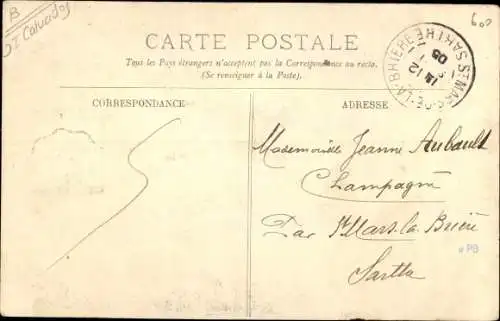 B
DI Calvados
600
CARTE POSTALE
Tous les Pays étrangers n'acceptent pas la Correspondance au recto.
(Se renseigner à la Poste).
ST MARS-DE-LA-BRIERE
SARTHE
12
05
CORRESPONDANCE
ADRESSE
Mademoiselle Jeanne Aubault
Champagné
Par St Mars-la-Brière
Sarthe
PB